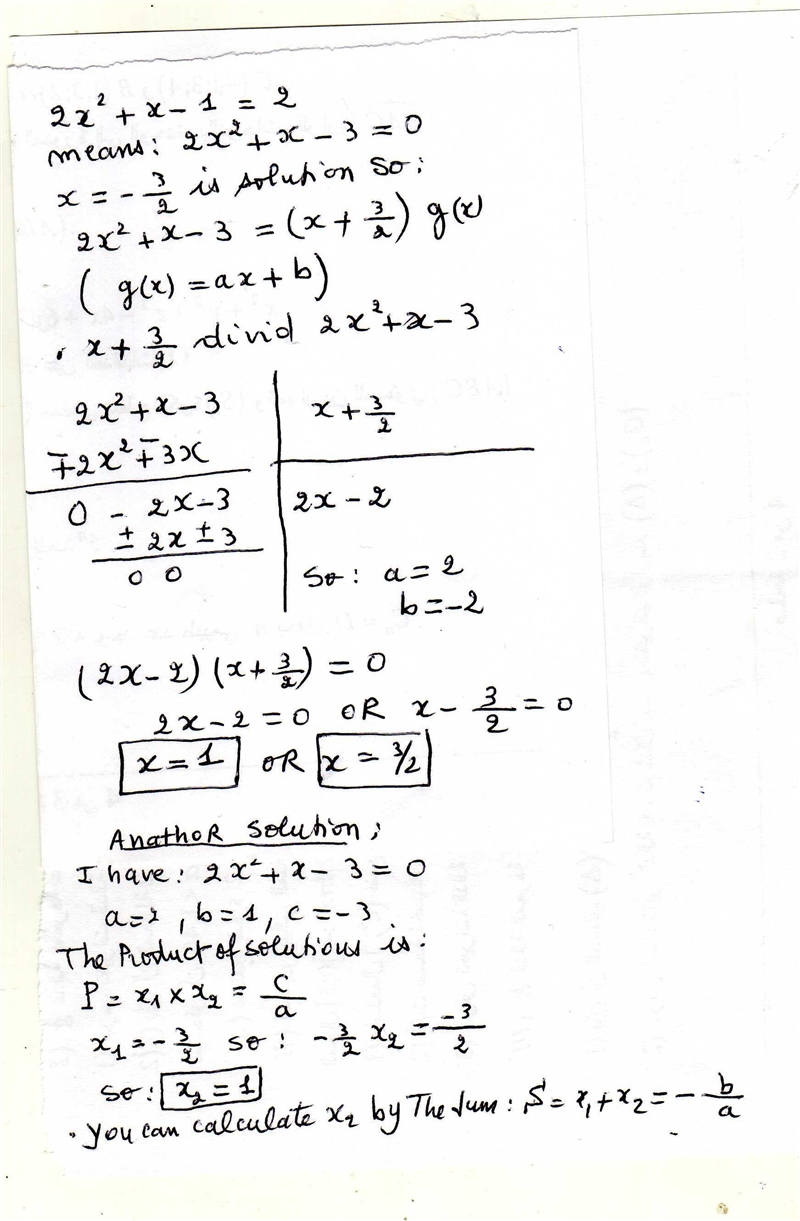 2x² + x - 1 = 2
means: 2x² + x - 3 = 0
x = - 3/2 is solution so:
2x² + x - 3 = (x + 3/2) g(x)
( g(x) = ax + b)
. x + 3/2 divid 2x² + x - 3
2x² + x - 3 x + 3/2
∓2x² ∓ 3x
0 - 2x - 3 2x - 2
± 2x ± 3
0 0 so: a = 2
b = -2
(2x - 2) (x + 3/2) = 0
2x - 2 = 0 OR x - 3/2 = 0
x = 1 OR x = 3/2
AnathoR solution;
I have: 2x² + x - 3 = 0
a = 2, b = 1, c = -3
The Product of solutions is:
P = x₁ × x₂ = c/a
x₁ = - 3/2 so: - 3/2 x₂ = -3/2
so: x₂ = 1
. you can calculate x₂ by The sum: S = x₁ + x₂ = - b/a